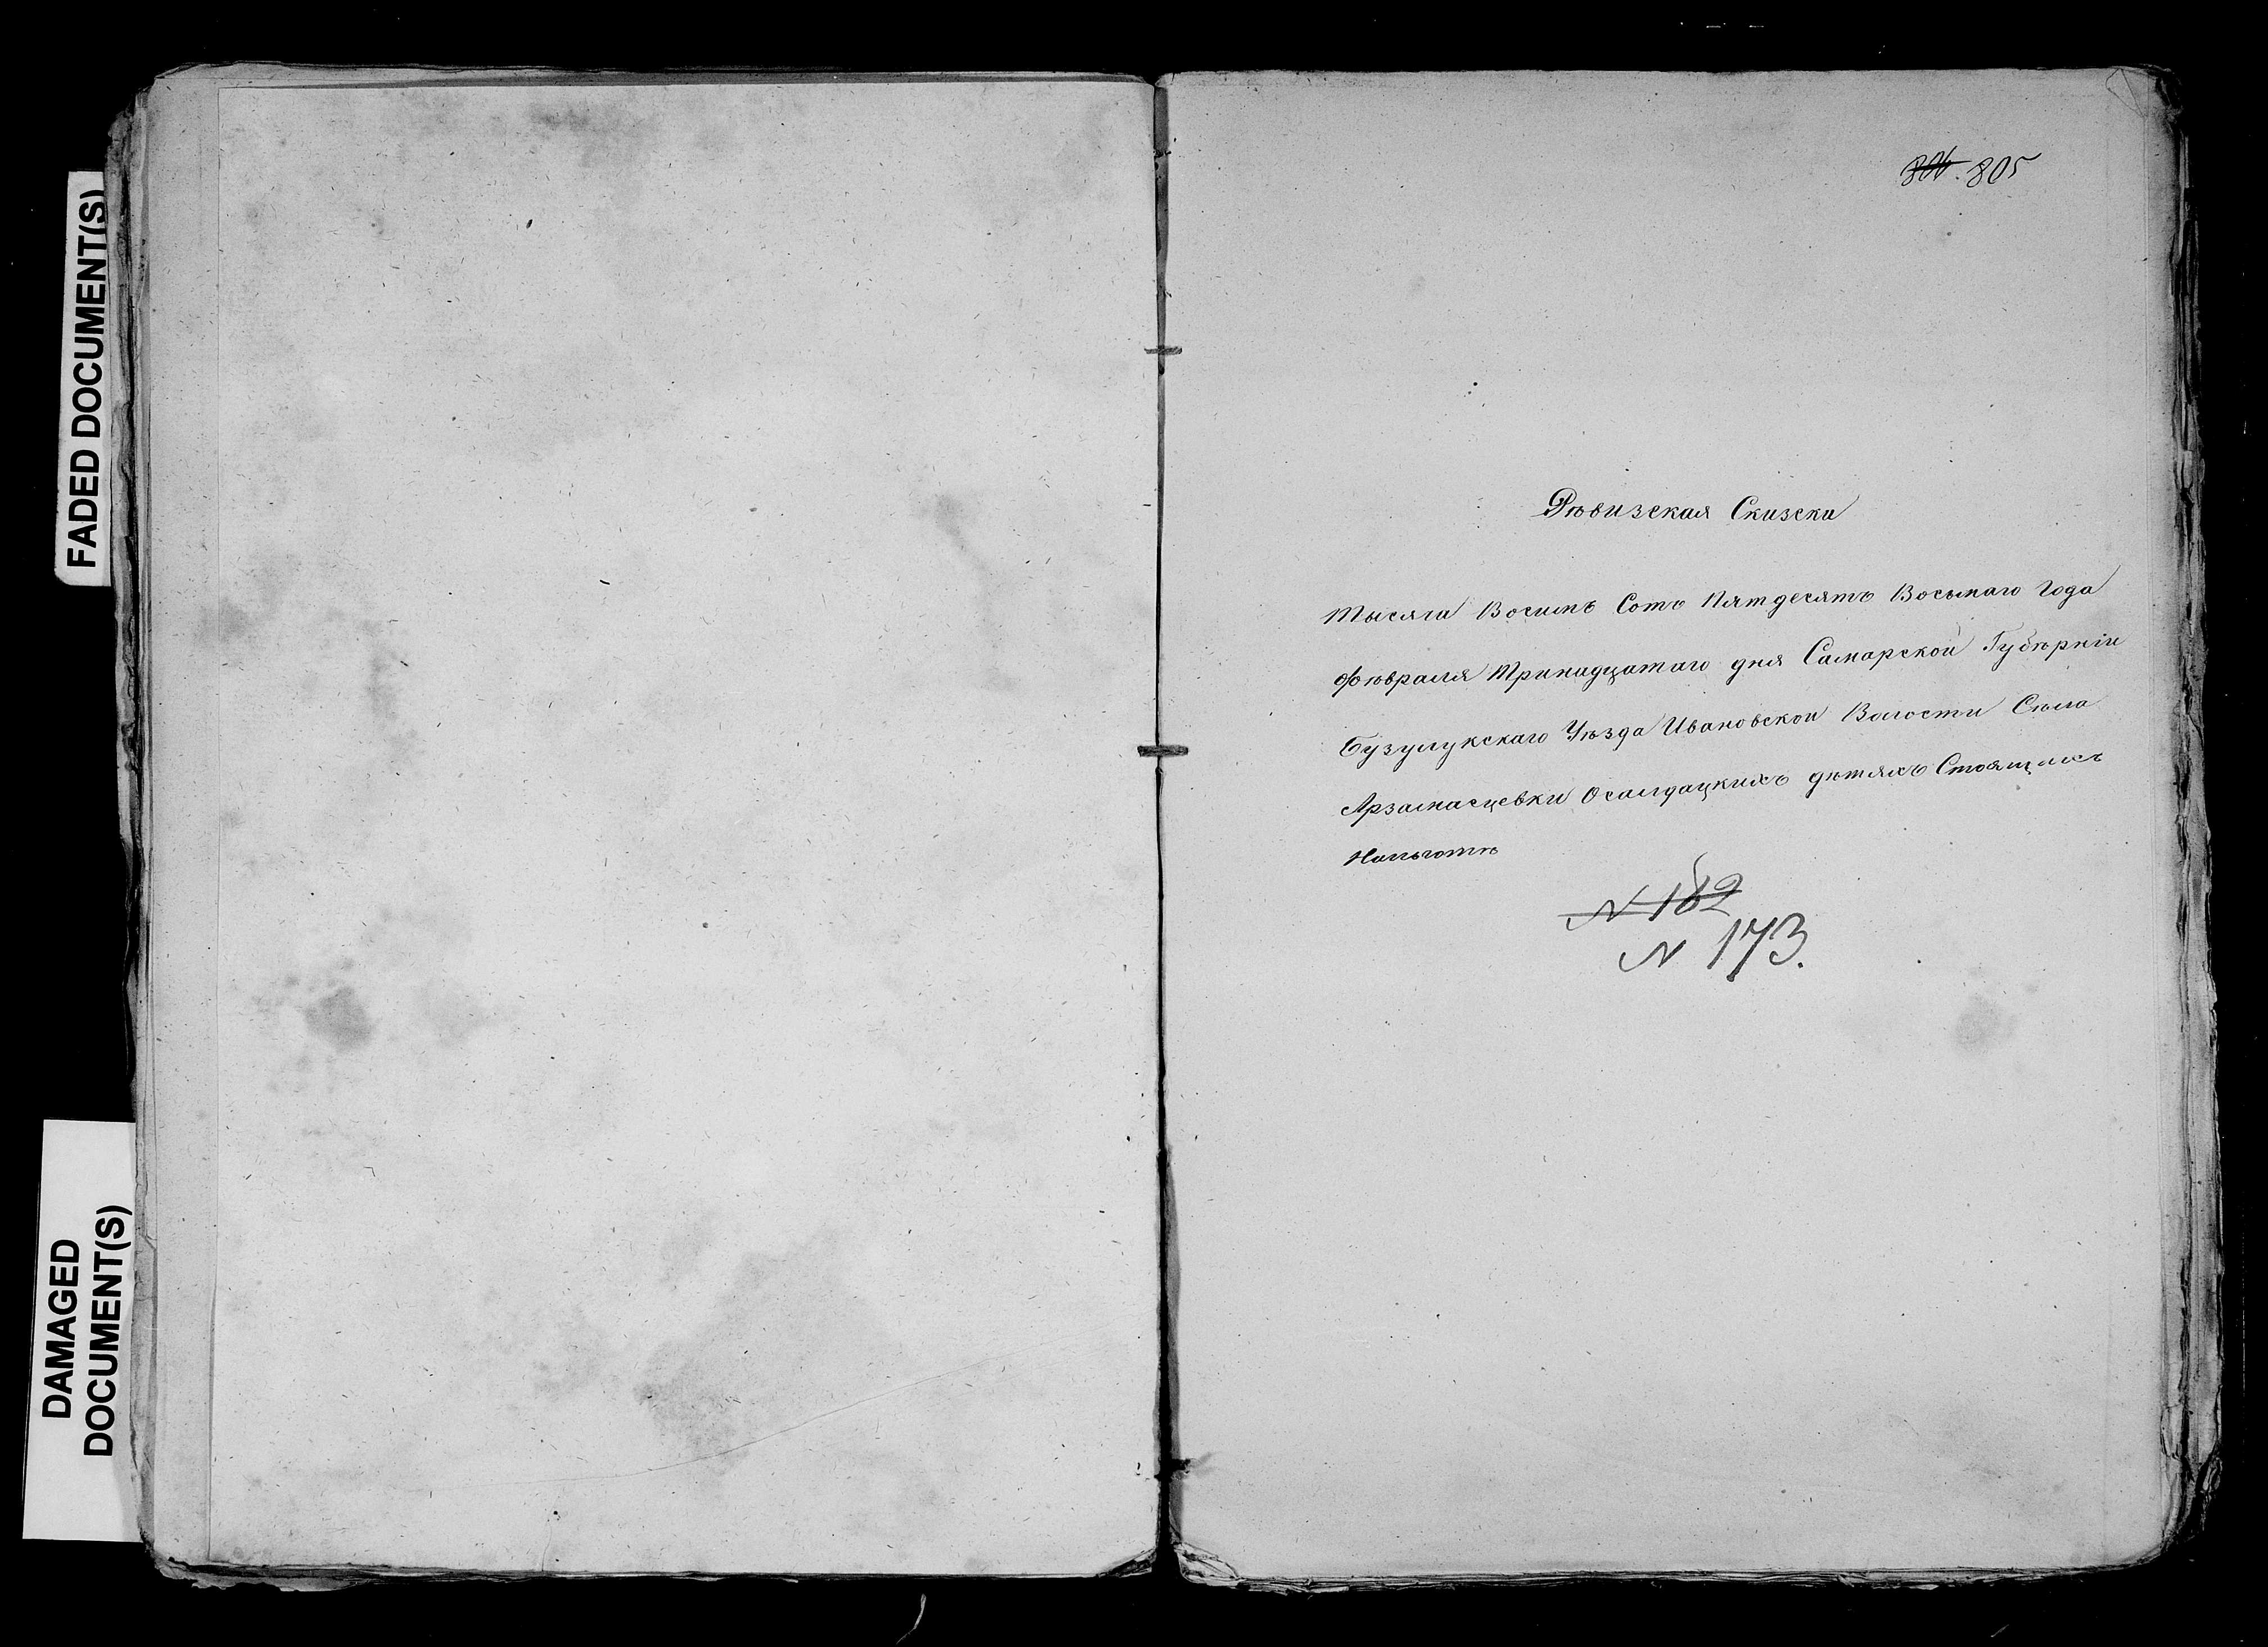 FADED DOCUMENT(S)
DAMAGED
DOCUMENT(S)
806. 805
Рѣвизская Скизски
Тысяча Восимъ Сотъ Пятдесятъ Восьмаго Года
Фѣвраля Тринадцатаго дня Самарской Губѣрніи
Бузулукскаго Уѣзда Ивановской Волости Сѣла
Арзамасцевки Осалдацкихъ дѣтяхъ Стоящихъ
Нальготѣ
N 182
N 173.